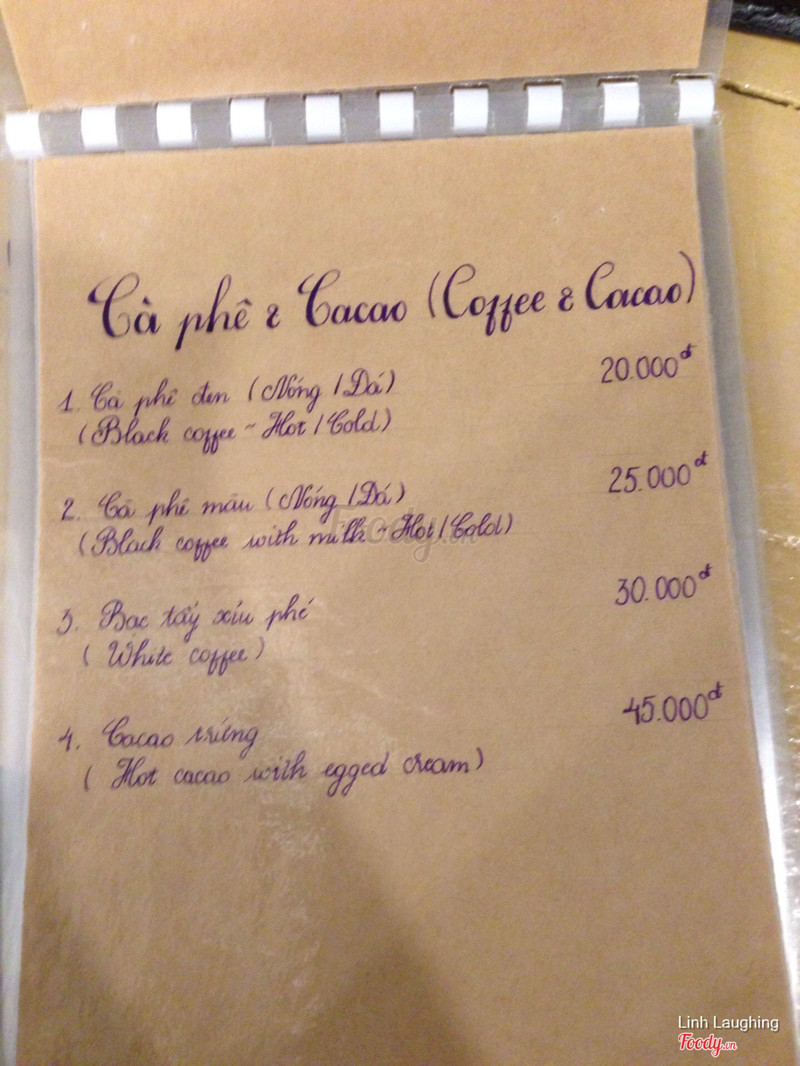 Cà phê & Cacao (Coffee & Cacao)
1. Cà phê đen (Nóng / Đá) 20.000đ
(Black coffee ~ Hot / Cold)
2. Cà phê nâu (Nóng / Đá) 25.000đ
(Black coffee with milk ~ Hot / Cold)
3. Bạc tẩy xỉu phé 30.000đ
( White coffee )
4. Cacao trứng 45.000đ
( Hot cacao with egged cream )
Foody.vn
Linh Laughing
Foody.vn